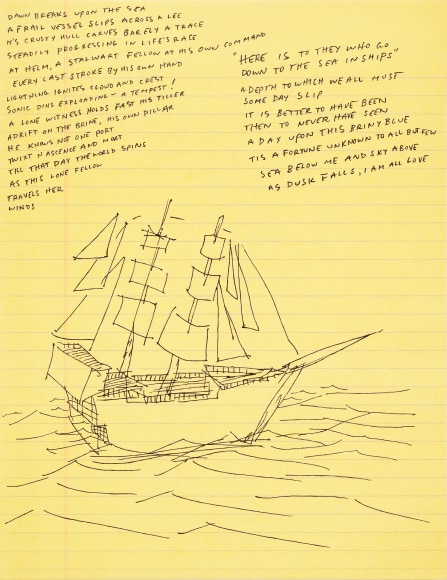 DAWN BREAKS UPON THE SEA
A FRAIL VESSEL SLIPS ACROSS A LEE
IT'S CRUSTY HULL CARVES BARELY A TRACE
STEADILY PROGRESSING IN LIFE'S RACE
AT HELM, A STALWART FELLOW AT HIS OWN COMMAND
EVERY LAST STROKE BY HIS OWN HAND
LIGHTNING IGNITES CLOUD AND CREST
SONIC DINS EXPLOADING - A TEMPEST!
A LONE WITNESS HOLDS FAST HIS TILLER
ADRIFT ON THE BRINE, HIS OWN PILLAR
HE KNOWS NOT ONE PORT
TWIXT NASCENCE AND MORT
TILL THAT DAY THE WORLD SPINS
AS THIS LONE FELLOW
TRAVELS HER
WINDS
"HERE IS TO THEY WHO GO
DOWN TO THE SEA IN SHIPS"
A DEPTH TO WHICH WE ALL MUST
SOME DAY SLIP
IT IS BETTER TO HAVE BEEN
THEN TO NEVER HAVE SEEN
A DAY UPON THIS BRINY BLUE
TIS A FORTUNE UNKNOWN TO ALL BUT FEW
SEA BELOW ME AND SKY ABOVE
AS DUSK FALLS, I AM ALL LOVE